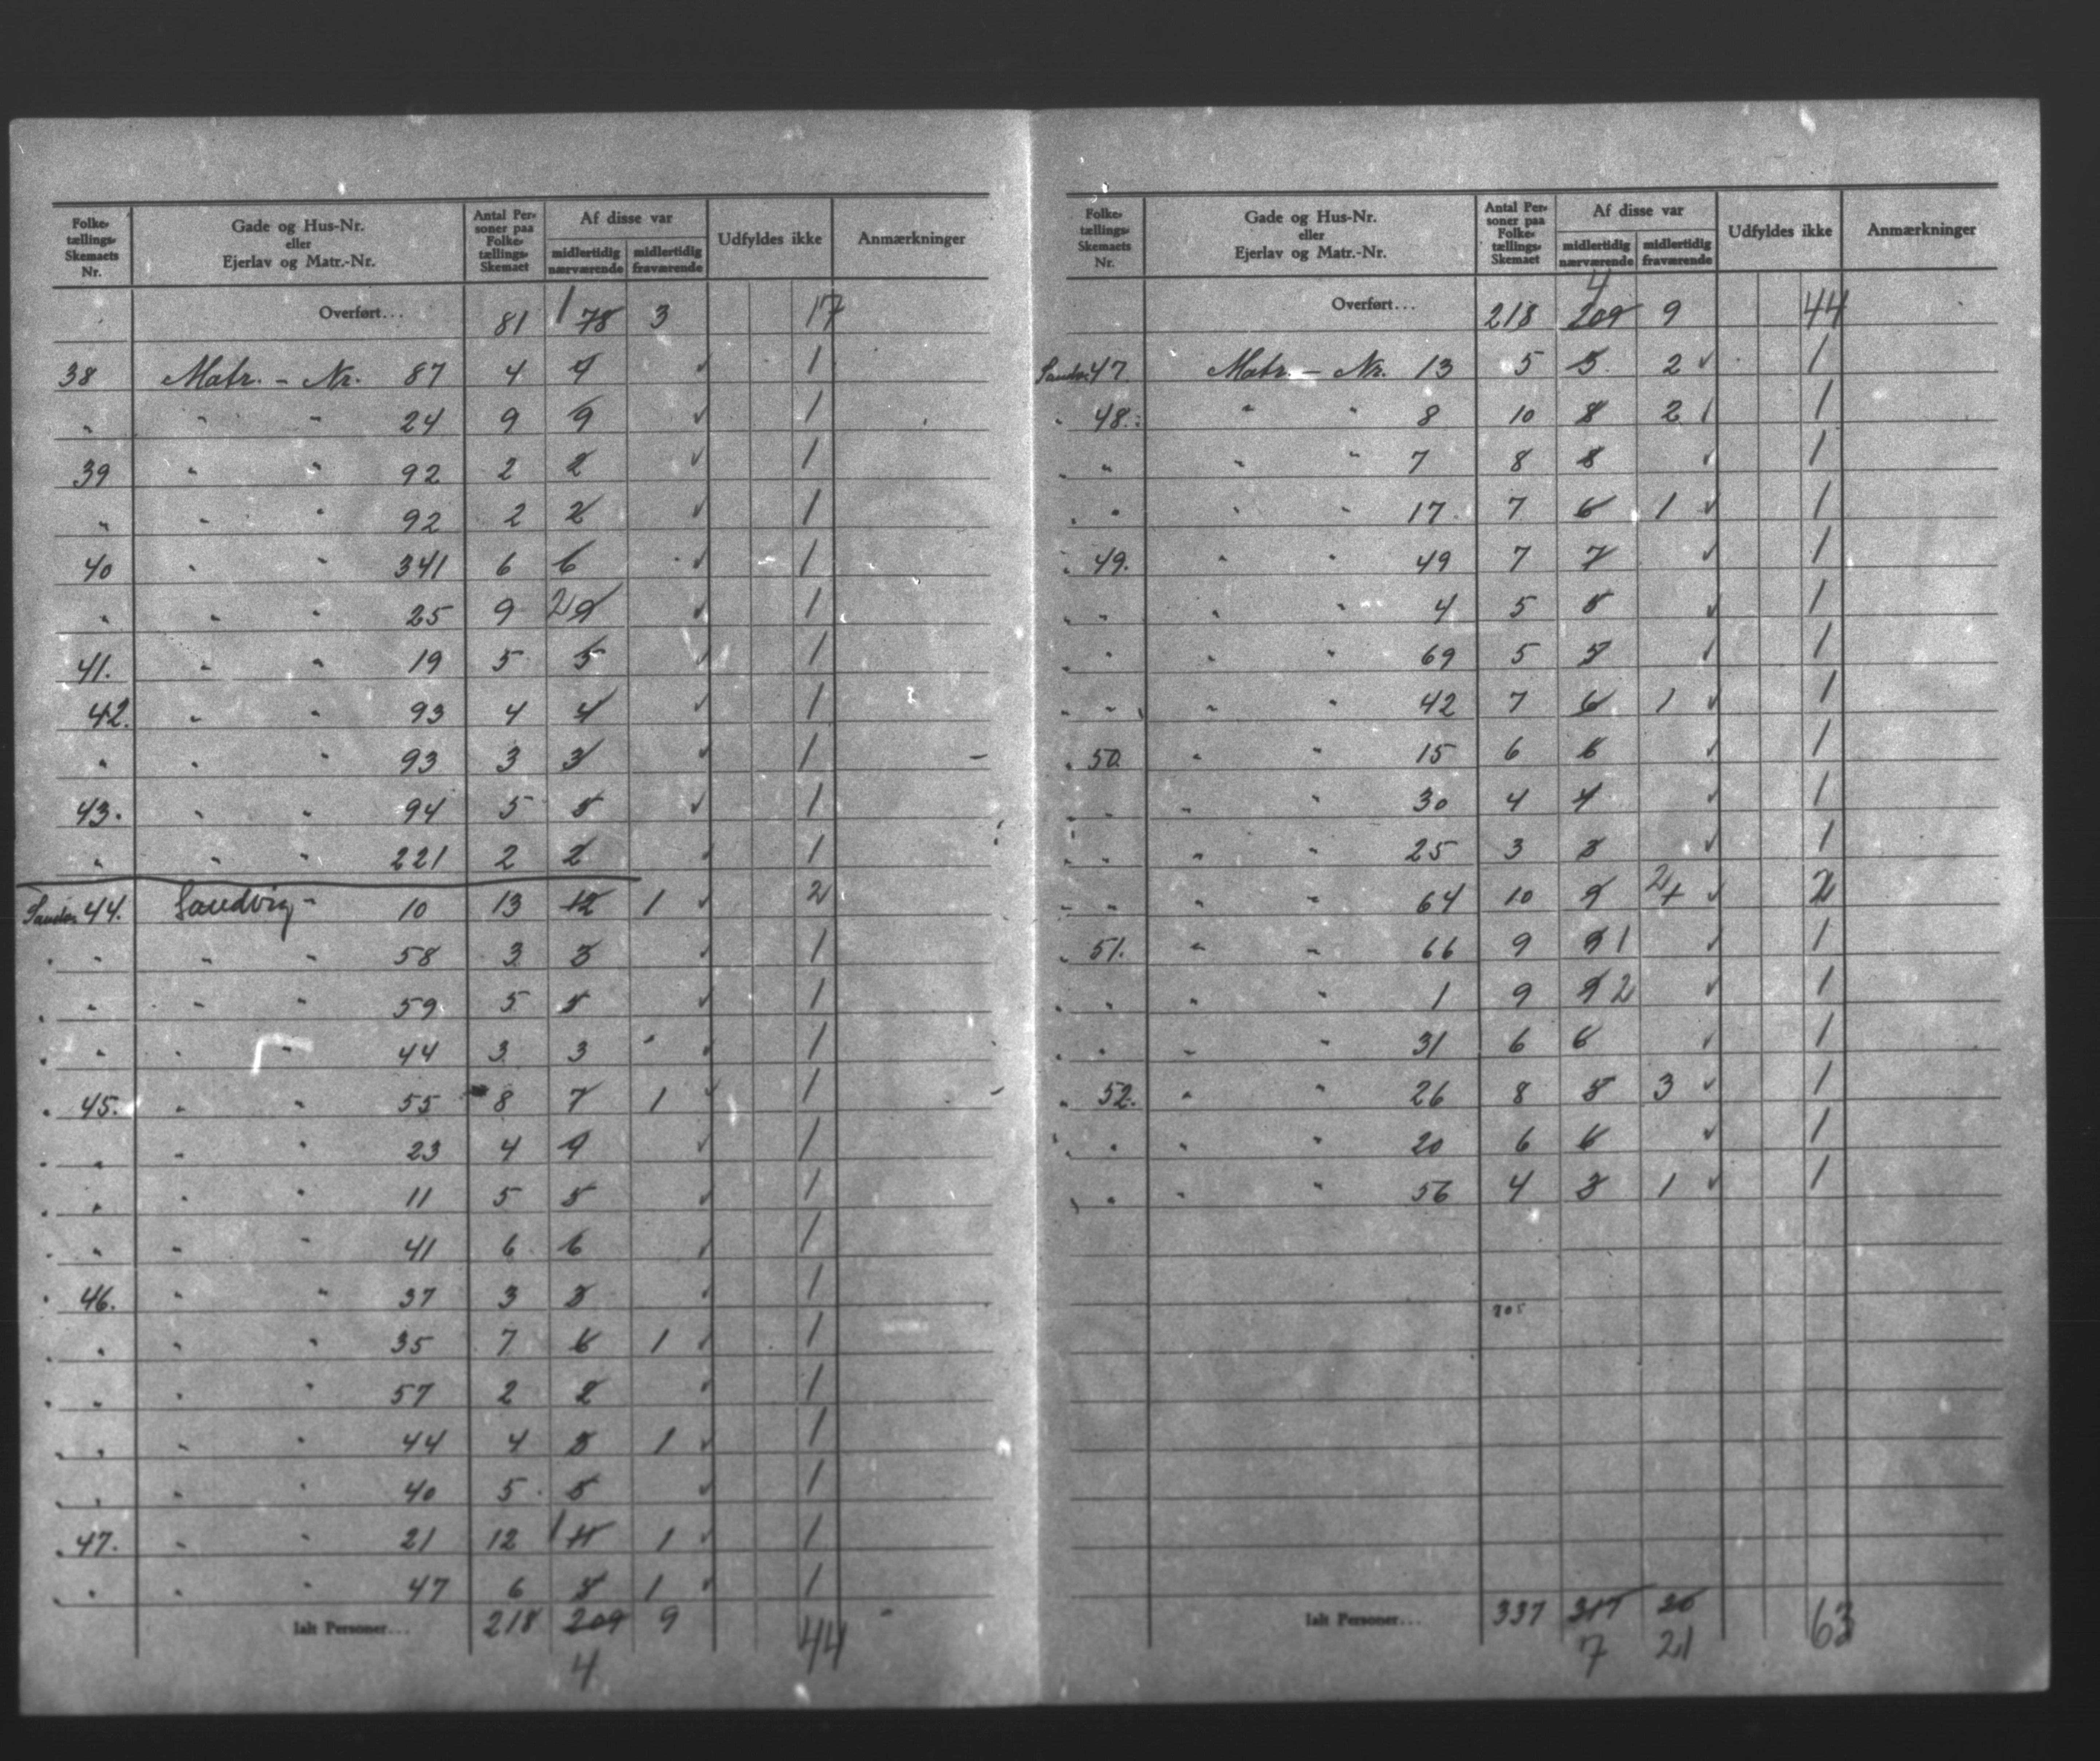 Folke- tællings- Skemaets Nr. | Gade og Hus-Nr. eller Ejerlav og Matr.-Nr. | Antal Per- soner paa Folke- tællings- Skemaet | Af disse var midlertidig nærværende | midlertidig fraværende | Udfyldes ikke | Anmærkninger
Overført... 81 1 78 3 17
38 Matr. - Nr. 87 4 4 ✓ 1
" " " 24 9 9 ✓ 1
39 " " 92 2 2 ✓ 1
" " " 92 2 2 ✓ 1
40 " " 341 6 6 ✓ 1
" " " 25 9 2 9 ✓ 1
41. " " 19 5 5 ✓ 1
42. " " 93 4 4 ✓ 1
" " " 93 3 3 ✓ 1
43. " " 94 5 5 ✓ 1
" " " 221 2 2 ✓ 1
Sandv. 44. Sandvig " 10 13 12 1 ✓ 2
" " " " 58 3 3 ✓ 1
" " " " 59 5 5 ✓ 1
" " " " 44 3 3 ✓ 1
" 45. " " 55 8 7 1 ✓ 1
" " " " 23 4 4 ✓ 1
" " " " 11 5 5 ✓ 1
" " " " 41 6 6 ✓ 1
" 46. " " 37 3 3 ✓ 1
" " " " 35 7 6 1 ✓ 1
" " " " 57 2 2 ✓ 1
" " " " 44 4 3 1 ✓ 1
" " " " 40 5 5 ✓ 1
" 47. " " 21 12 1 11 1 ✓ 1
" " " " 47 6 5 1 ✓ 1
Ialt Personer... 218 209 9 44
4
Folke- tællings- Skemaets Nr. | Gade og Hus-Nr. eller Ejerlav og Matr.-Nr. | Antal Per- soner paa Folke- tællings- Skemaet | Af disse var midlertidig nærværende | midlertidig fraværende | Udfyldes ikke | Anmærkninger
4
Overført... 218 209 9 44
Sandv. 47. Matr. - Nr. 13 5 3 2 ✓ 1
" 48. " " 8 10 8 2 ✓ 1
" " " 7 8 8 ✓ 1
" " " " 17 7 6 1 ✓ 1
" 49. " " 49 7 7 ✓ 1
" " " " 4 5 5 ✓ 1
" " " " 69 5 5 ✓ 1
" " " " 42 7 6 1 ✓ 1
" 50. " " 15 6 6 ✓ 1
" " " " 30 4 4 ✓ 1
" " " " 25 3 3 ✓ 1
" " " " 64 10 9 2 1 ✓ 2
" 51. " " 66 9 9 1 ✓ 1
" " " " 1 9 9 2 ✓ 1
" " " " 31 6 6 ✓ 1
" 52. " " 26 8 5 3 ✓ 1
" " " " 20 6 6 ✓ 1
" " " " 56 4 3 1 ✓ 1
Ialt Personer... 337 317 20 63
7 21